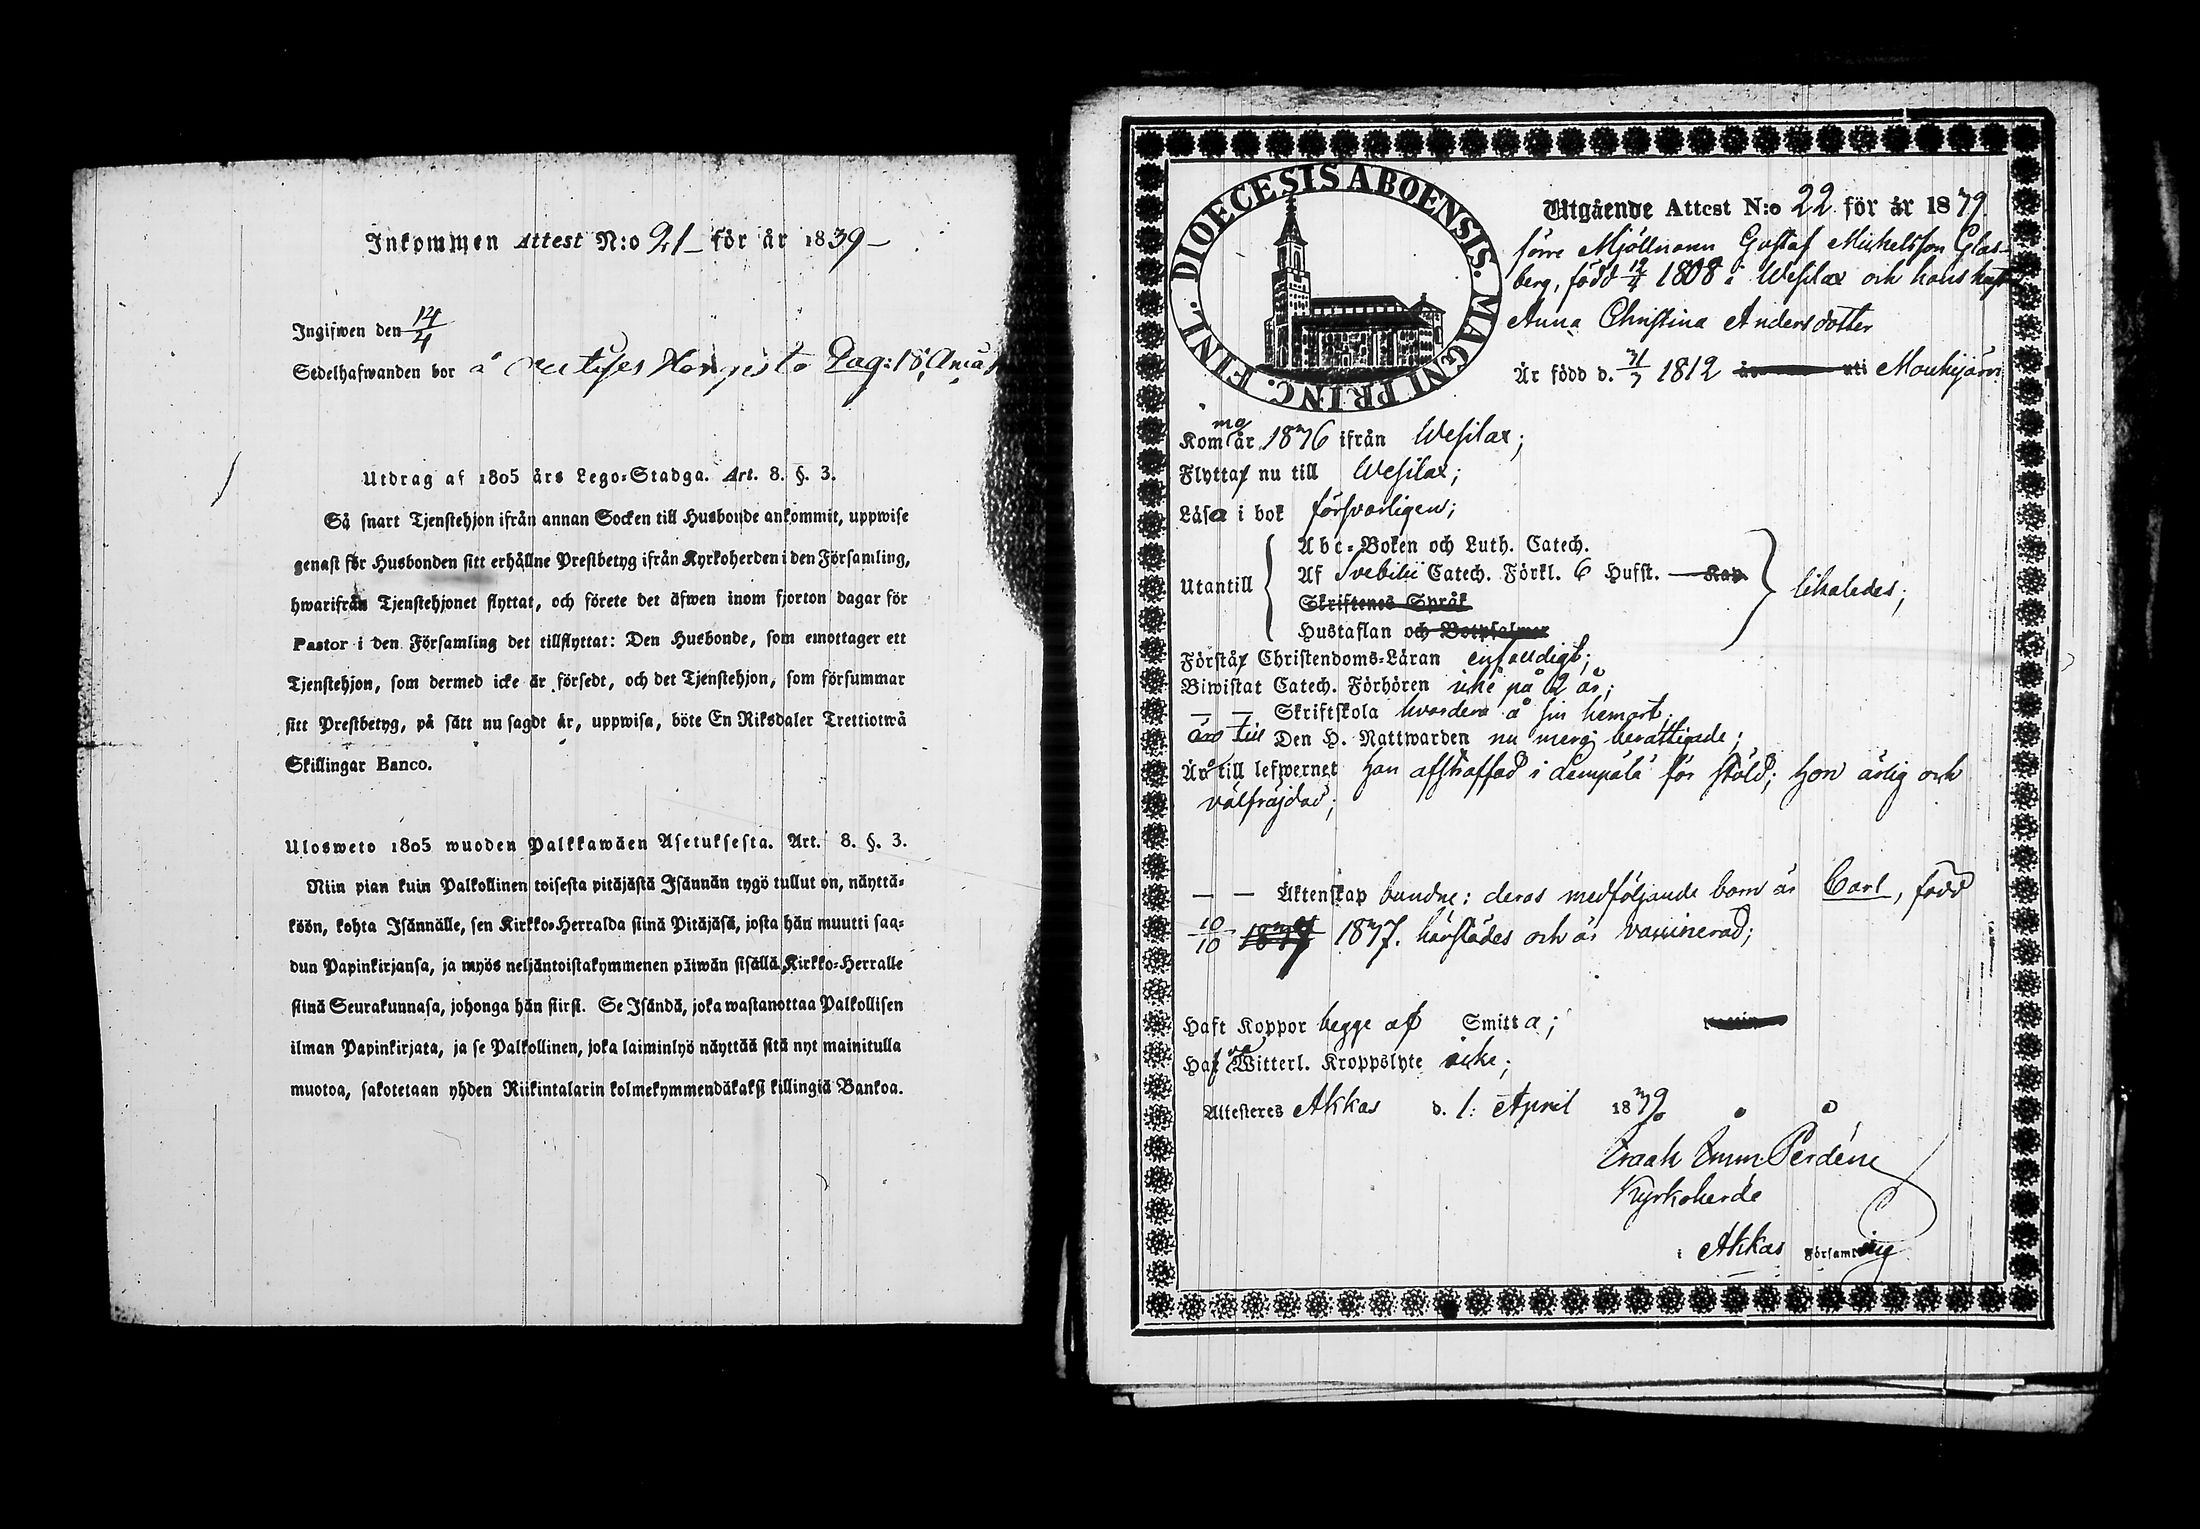 Inkommen Attest N:o 21 för år 1839
Ingifwen den 14/4
Sedelhafwanden bor å Pag: 18
Utdrag af 1805 års Lego-Stadga. Art. 8. §. 3.
Så snart Tjenstehjon ifrån annan Socken till Husbonde ankommit, uppwise
genast för Husbonden sitt erhållne Prestbetyg ifrån Kyrkoherden i den Församling,
hwarifrån Tjenstehjonet flyttat, och förete det äfwen inom fjorton dagar för
Pastor i den Församling det tillflyttat: Den Husbonde, som emottager ett
Tjenstehjon, som dermed icke är försedt, och det Tjenstehjon, som försummar
sitt Prestbetyg, på sätt nu sagdt är, uppwisa, böte En Riksdaler Trettiotwå
Skillingar Banco.
Ulosweto 1805 wuoden Palkkawäen Asetuksesta. Art. 8. §. 3.
Niin pian kuin Palkollinen toisesta pitäjästä Isännän tygö tullut on, näyttä-
köön, kohta Isännälle, sen Kirkko-Herralda siinä Pitäjäsä, josta hän muutti saa-
dun Papinkirjansa, ja myös neljäntoistakymmenen päiwän sisällä Kirkko-Herralle
siinä Seurakunnasa, johonga hän siirsi. Se Isändä, joka wastanottaa Palkollisen
ilman Papinkirjata, ja se Palkollinen, joka laiminlyö näyttää sitä nyt mainitulla
muotoa, sakotetaan yhden Riikintalarin kolmekymmendäkaksi killingiä Bankoa.
DIOECESIS ABOENSIS. MAGNI PRINC. FINL.
Utgående Attest N:o 22 för år 1839
förre Mjöllnaren Gustaf Michelsson Glas-
berg, född 12/4 1808 i Wesilax och hans hustru
Anna Christina Andersdotter
Är född d. 31/7 1812 uti Mouhijärvi
Komma år 1836 ifrån Wesilax;
Flytta nu till Wesilax;
Läsa i bok försvarligen;
Utantill
Abc-Boken och Luth. Catech.
Af Svebilii Catech. Förkl. 6 Hufst. Kap.
Skriftenes Språk
Hustaflan och Botpsalmer
likaledes;
Förstå Christendoms-Läran enfaldigt;
Biwistat Catech. Förhören icke på 2 år;
— — Skriftskola hvardera å sin hemort.
äro till Den H. Nattwarden nu mera berättigade;
Äro till lefwernet han afstraffad i Lempälä för stöld; hon ärlig och
välfräjdad;
— — Äktenskap bundne: deras medföljande barn är Carl, född
10/10 1837. härstädes och är vaccinerad;
Haft Koppor begge af Smitta;
Hafva Witterl. Kroppslyte icke;
Attesteres Akkas d. 1: April 1839
Isaak Emm. Perdéne
Kyrkoherde
i Akkas Församling